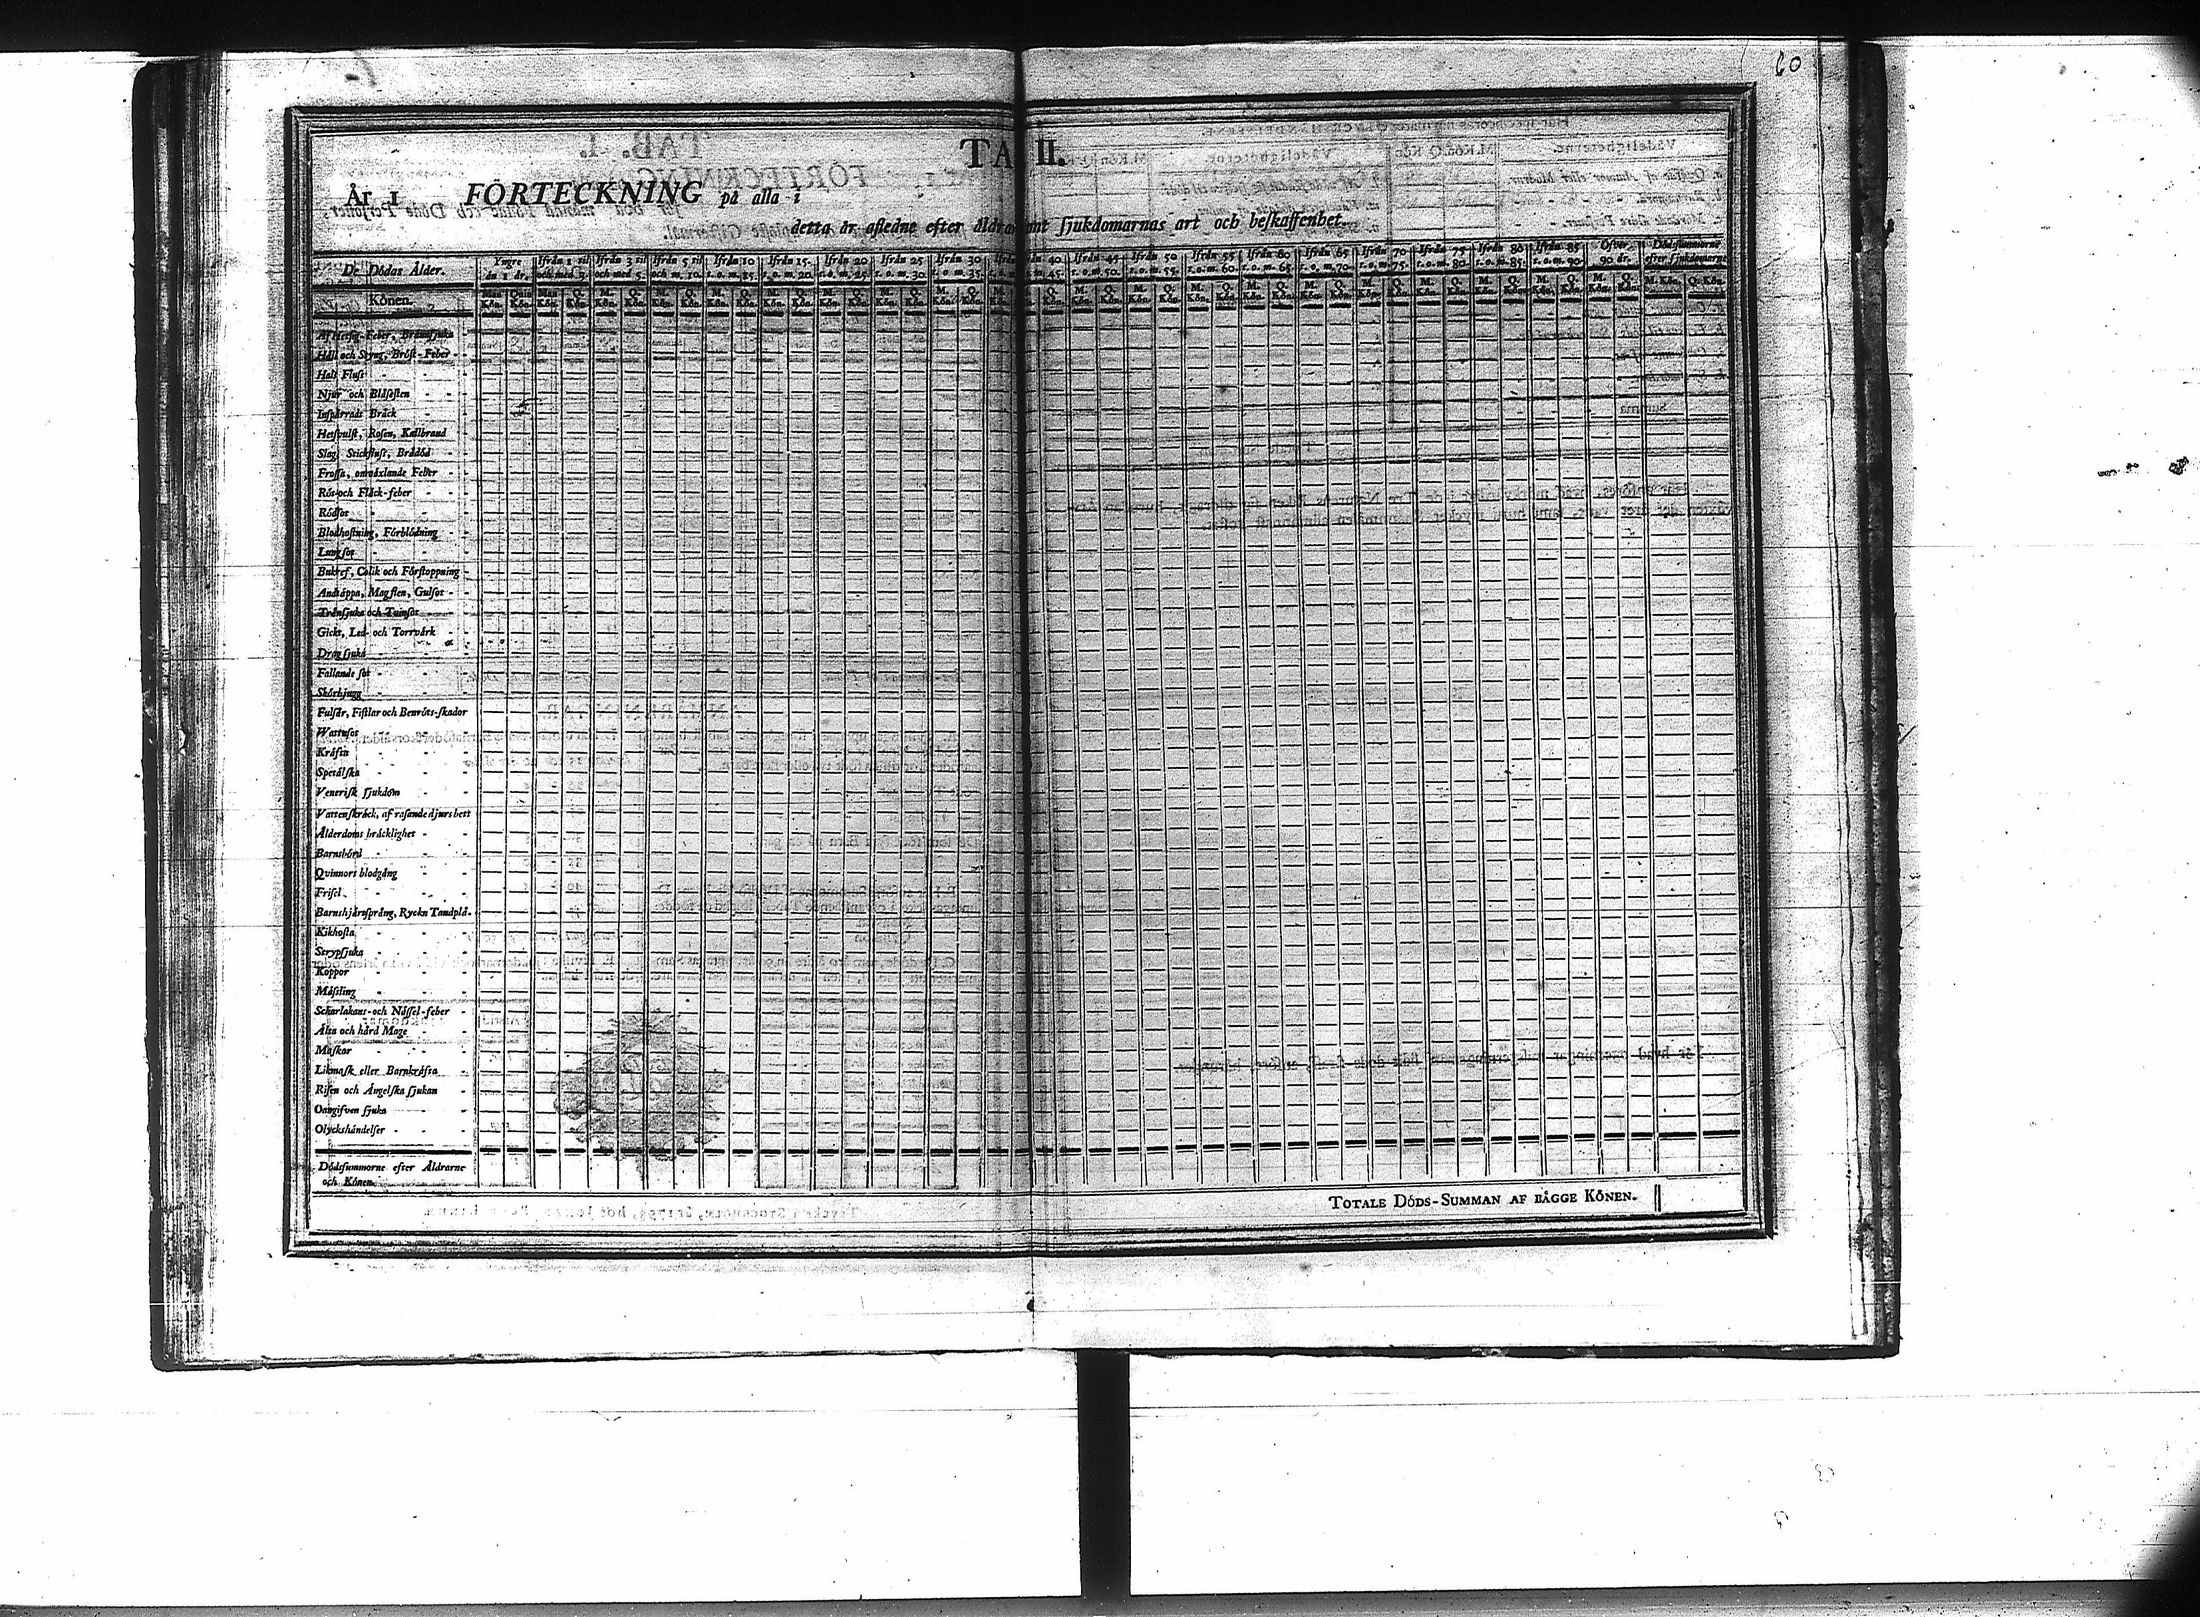 60
TA II.
År 1 FÖRTECKNING på alla i
detta år afledne efter åldrar amt ſjukdomarnas art och beſkaffenhet.
De Dödas Ålder. Yngre än 1 år. Ifrån 1 til och med 3. Ifrån 3 til och med 5. Ifrån 5 til och m. 10. Ifrån 10 t. o. m. 15. Ifrån 15. t. o. m. 20. Ifrån 20 t. o. m. 25. Ifrån 25 t. o. m. 30. Ifrån 30 t. o. m. 35. 40 m. 45. Ifrån 45 t. o. m. 50. Ifrån 50 t. o. m. 55. Ifrån 55 t. o. m. 60. Ifrån 60 t. o. m. 65. Ifrån 65 t. o. m. 70. Ifrån 70 t. o. m. 75. Ifrån 75 t. o. m. 80. Ifrån 80 t. o. m. 85. Ifrån 85 t. o. m. 90. Öfver 90 år. Dödsſummorne efter ſjukdomarne
Könen. Man Kön. Qvin Kön. Man Kön. Q. Kön. M. Kön. Q. Kön. M. Kön. Q. Kön. M. Kön. Q. Kön. M. Kön. Q. Kön. M. Kön. Q. Kön. M. Kön. Q. Kön. M. Kön. Q. Kön. M. Kön. Q. Kön. M. Kön. Q. Kön. M. Kön. Q. Kön. M. Kön. Q. Kön. M. Kön. Q. Kön. M. Kön. Q. Kön. M. Kön. Q. Kön. M. Kön. Q. Kön. M. Kön. Q. Kön. M. Kön. Q. Kön. M. Kön. Q. Kön.
Af Hetſig-Feber, Brännſjuka
Håll och Styng, Bröſt-Feber
Hals Fluſs
Njur och Blåſeſten
Inſpärradt Bråck
Hetſvulſt, Roſen, Kallbrand
Slag, Stickfluſs, Brådöd
Froſſa, omväxlande Feber
Röt-och Fläck-feber
Rödſot
Blodhoſtning, Förblödning
Lungſot
Bukref, Colik och Förſtoppning
Andtäppa, Magſten, Gulſot
Trånſjuka och Tvinſot
Gickt, Led- och Torrvärk
Dragſjuka
Fallande ſot
Skörbjugg
Fulſår, Fiſtlar och Benröts-ſkador
Wattuſot
Kräfta
Spetälſka
Veneriſk ſjukdom
Vattenſkräck, af raſande djurs bett
Ålderdoms bräcklighet
Barnsbörd
Qvinnors blodgång
Friſel
Barnshjärtſprång, Ryckn Tandplå.
Kikhoſta
Strypſjuka
Koppor
Mäſsling
Scharlakans- och Näſſel-feber
Älta och hård Mage
Maſkar
Likmaſk eller Barnkräfta
Riſen och Ängelſka ſjukan
Oangifven ſjuka
Olyckshändelſer
Dödsſummorne efter Åldrarne
och Könen.
TOTALE DÖDS-SUMMAN AF BÅGGE KÖNEN.